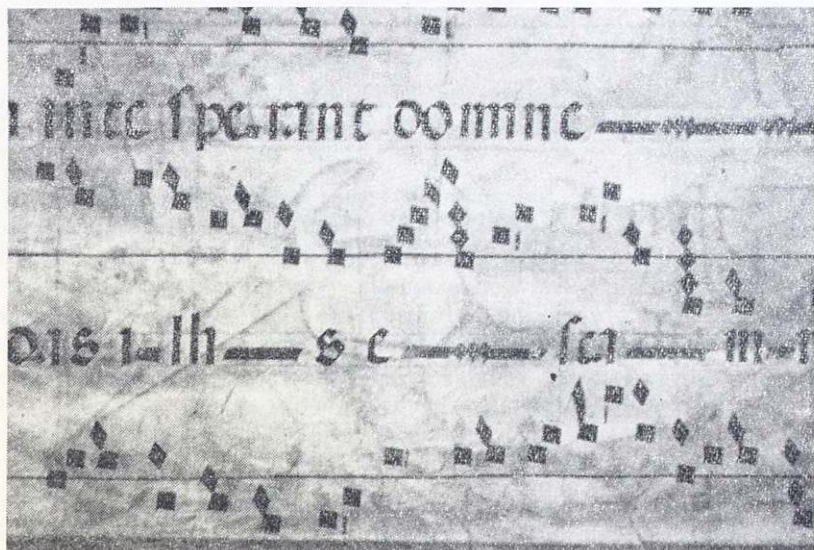 inte sperant domine
das i-lli—s e—sca—m